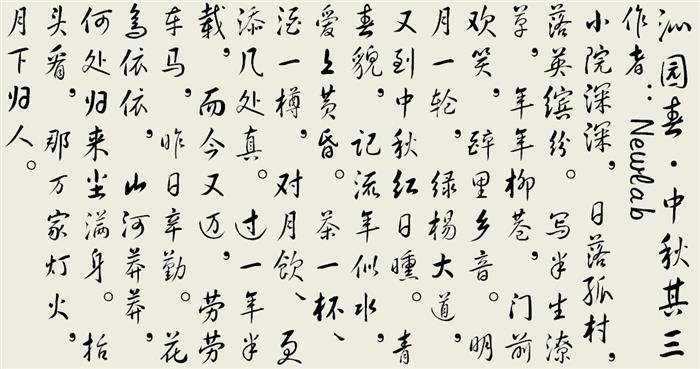 沁园春·中秋其三
作者：Newlab
小院深深，日落孤村，
落英缤纷。写半生潦
草，年年柳巷，门前
欢笑，醉里乡音。明
月一轮，绿杨大道，
又到中秋红日曛。青
春貌，记流年似水，
爱上黄昏。茶一杯、
酒一樽，对月饮、更
添几处真。过一年半
载，而今又迈，劳劳
车马，昨日辛勤。花
鸟依依，山河莽莽，
何处归来尘满身。抬
头看，那万家灯火，
月下归人。